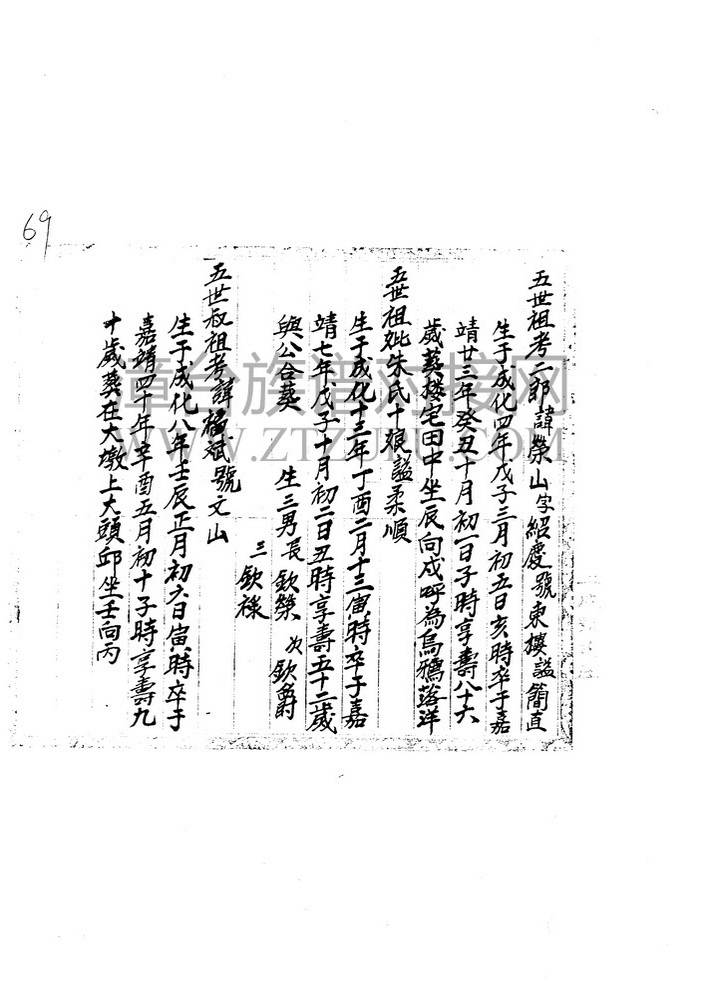 69
五世祖考二郎諱榮山字紹慶號東樓諡簡直
生于成化四年戊子三月初五日亥時卒于嘉
靖廿三年癸丑十月初一日子時享壽八十六
歲葬樓宅田中坐辰向戍呼為烏鴉落洋
五世祖妣朱氏十娘諡柔順
生于成化十三年丁酉二月十三寅時卒于嘉
靖七年戊子十月初二日丑時享壽五十二歲
與公合葬 生三男長欽榮 次欽爵
三欽祿
五世叔祖考諱福斌號文山
生于成化八年壬辰正月初六日寅時卒于
嘉靖四十年辛酉五月初十子時享壽九
十歲葬在大墩上大頭邱坐壬向丙
漳台族谱对接网
WWW.ZTZUPU.COM